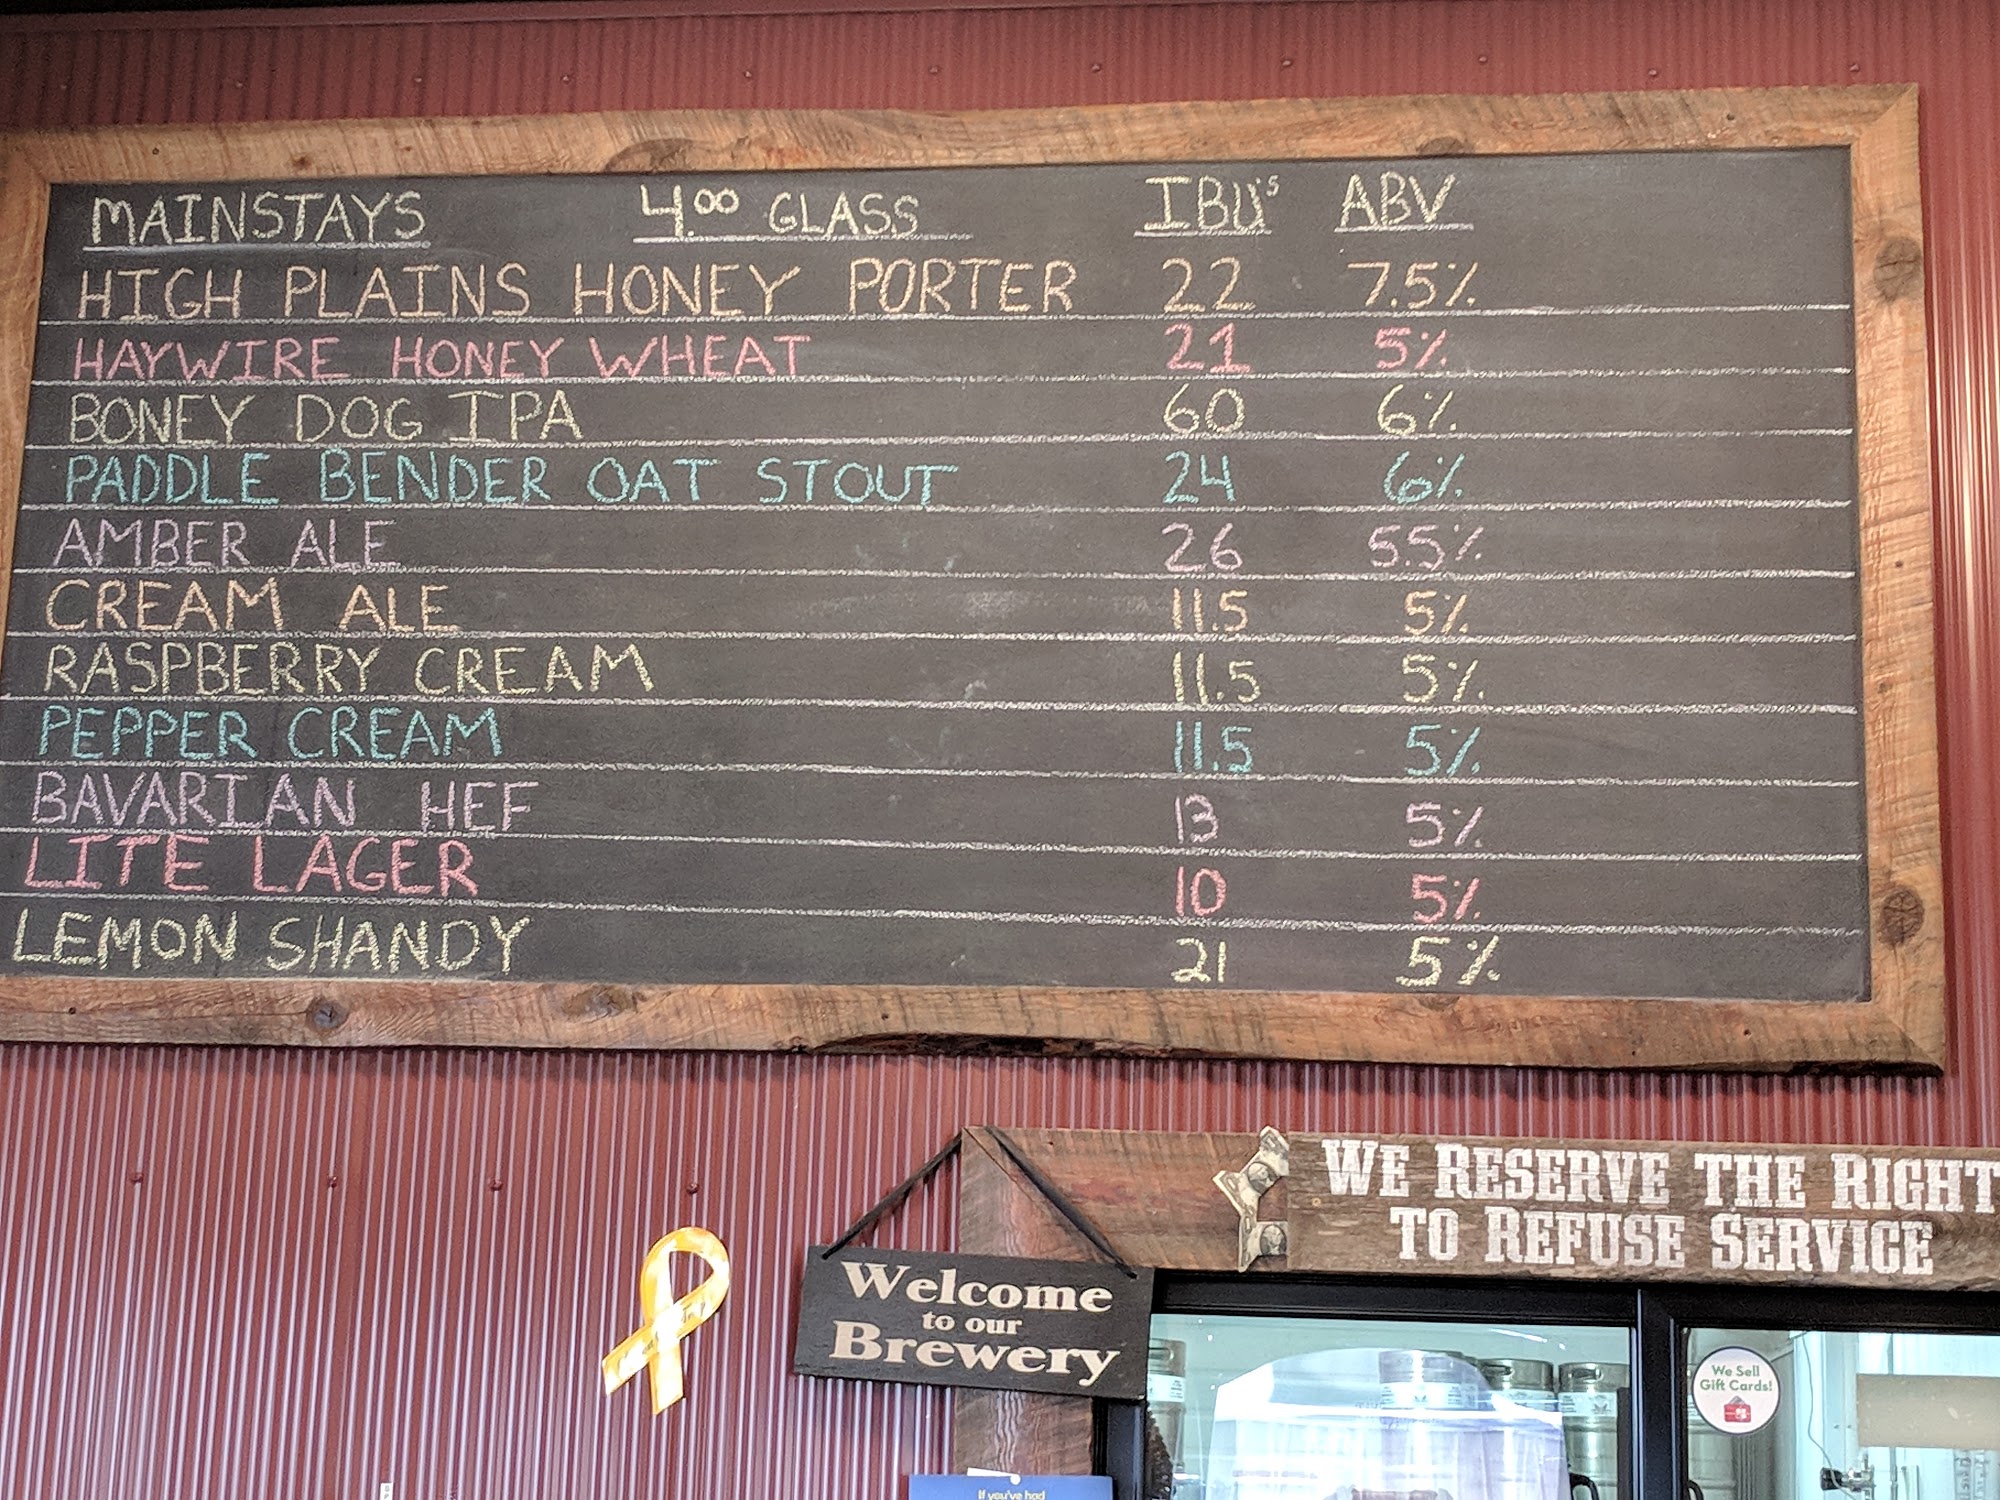 MAINSTAYS 4.00 GLASS IBU's ABV
HIGH PLAINS HONEY PORTER 22 7.5%
HAYWIRE HONEY WHEAT 21 5%
BONEY DOG IPA 60 6%
PADDLE BENDER OAT STOUT 24 6%
AMBER ALE 26 5.5%
CREAM ALE 11.5 5%
RASPBERRY CREAM 11.5 5%
PEPPER CREAM 11.5 5%
BAVARIAN HEF 13 5%
LITE LAGER 10 5%
LEMON SHANDY 21 5%
WE RESERVE THE RIGHT
TO REFUSE SERVICE
Welcome
to our
Brewery
We Sell
Gift Cards!
If you've had